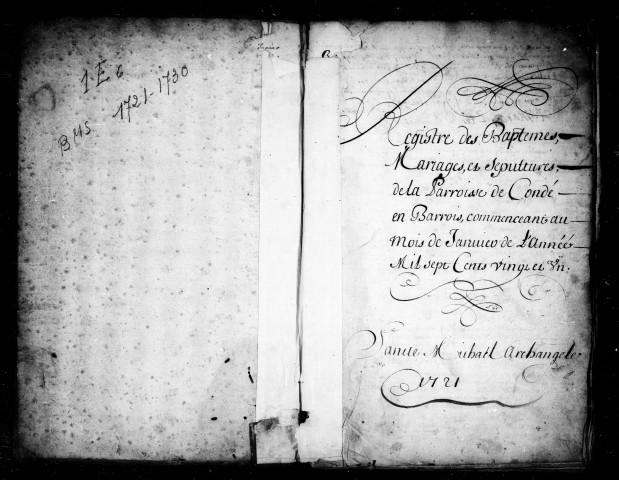 1.E 6
BMS 1721-1730
Registre des Baptemes,
Mariages, et Sepultures,
de la Parroisse de Condé
en Barrois, commenceant au
mois de Janvier de L'Année
Mil sept Cents vingt et Vn.
Sancte Michaël Archangele
1721